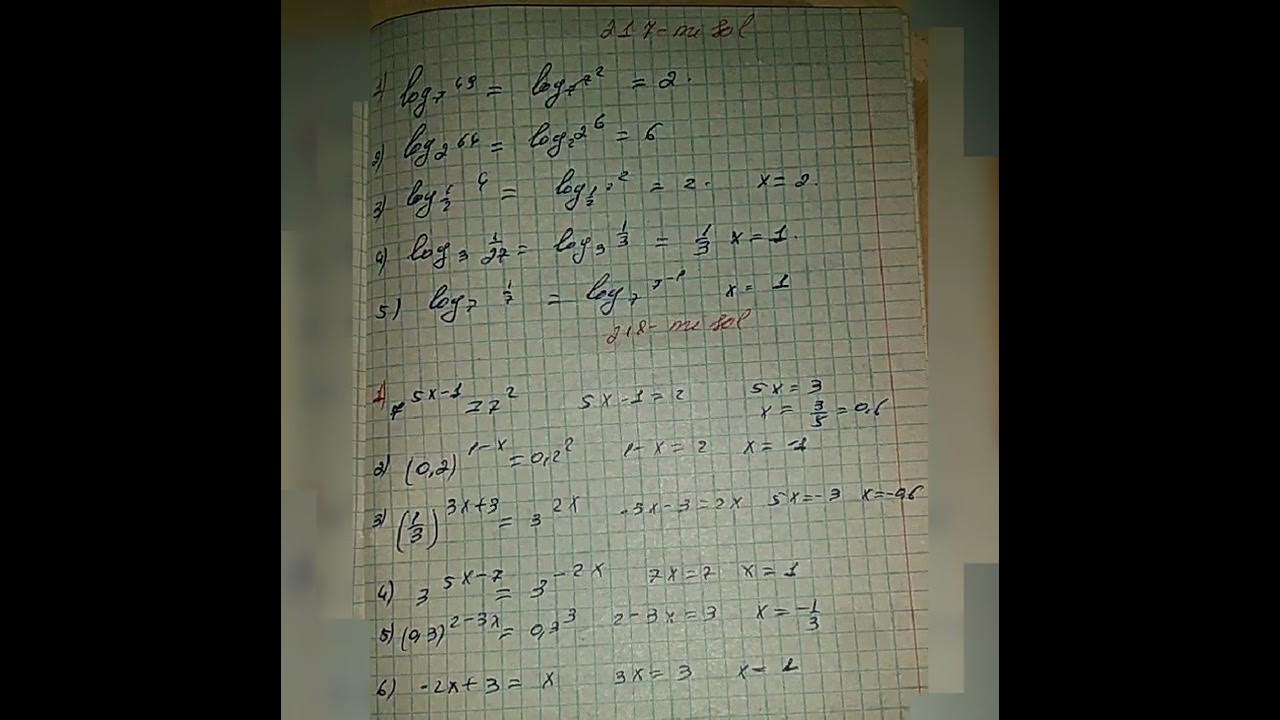 217-misol
1) log₇ 49 = log₇ 7² = 2.
2) log₂ 64 = log₂ 2⁶ = 6
3) log_{1/2} 4 = log_{1/2} ² = 2. x = 2.
4) log₃ 1/27 = log₃ 1/3 = 1/3 x = 1.
5) log₇ 1/7 = log₇ 7⁻¹ x = 1
218-misol
1) 7^{5x-1} = 7² 5x-1=2 5x=3
x = 3/5 = 0,6
2) (0,2)^{1-x} = 0,2² 1-x=2 x=-1
3) (1/3)^{3x+3} = 3^{2x} -3x-3=2x 5x=-3 x=-0,6
4) 3^{5x-7} = 3^{-2x} 7x=7 x=1
5) (0,3)^{2-3x} = 0,3³ 2-3x=3 x=-1/3
6) -2x+3 = x 3x=3 x=1